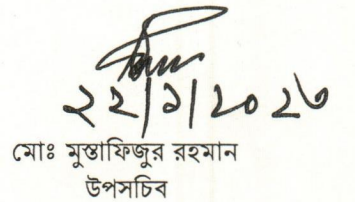 ২২/১/২০২৩
মোঃ মুস্তাফিজুর রহমান
উপসচিব